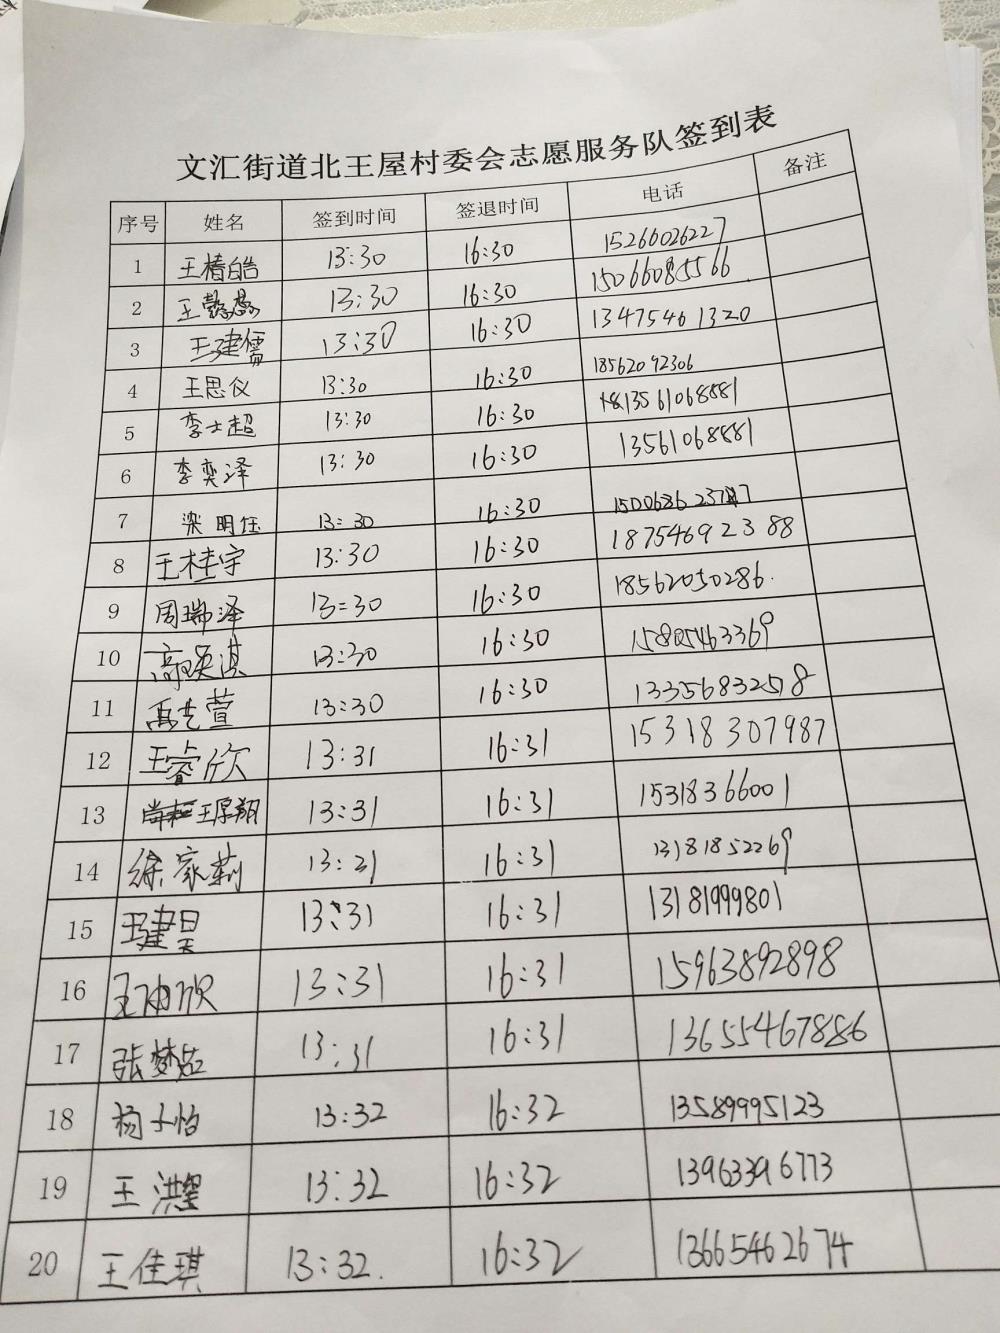 文汇街道北王屋村委会志愿服务队签到表
序号 姓名 签到时间 签退时间 电话 备注
1 王椿皓 13:30 16:30 15266026227
2 王懿 13:30 16:30 15066085566
3 王建儒 13:30 16:30 13475461320
4 王思仪 13:30 16:30 18562092306
5 李士超 13:30 16:30 13561068881
6 李奕泽 13:30 16:30 13561068881
7 梁明钰 13:30 16:30 1500686237
8 王桂宇 13:30 16:30 18754692388
9 周瑞泽 13:30 16:30 18562050286.
10 高 淇 13:30 16:30 15805463369
11 萱 13:30 16:30 13356832578
12 王睿欣 13:31 16:31 15318307987
13 王厚翔 13:31 16:31 15318366001
14 徐家莉 13:31 16:31 13181852269
15 王建昊 13:31 16:31 13181999801
16 王 欣 13:31 16:31 15963892898
17 张梦茹 13:31 16:31 13655467886
18 杨子怡 13:32 16:32 13589995123
19 王洪 13:32 16:32 13963396773
20 王佳琪 13:32. 16:32 13665462674